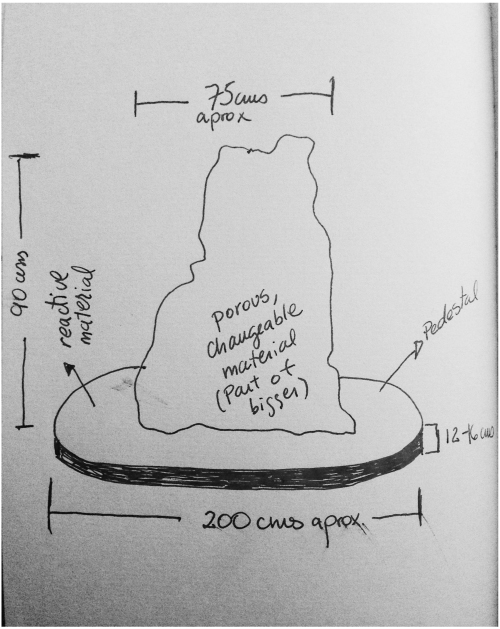 75cms
aprox
90 cms
reactive
material
porous,
changeable
material
(Part of
bigger)
Pedestal
200 cms aprox.